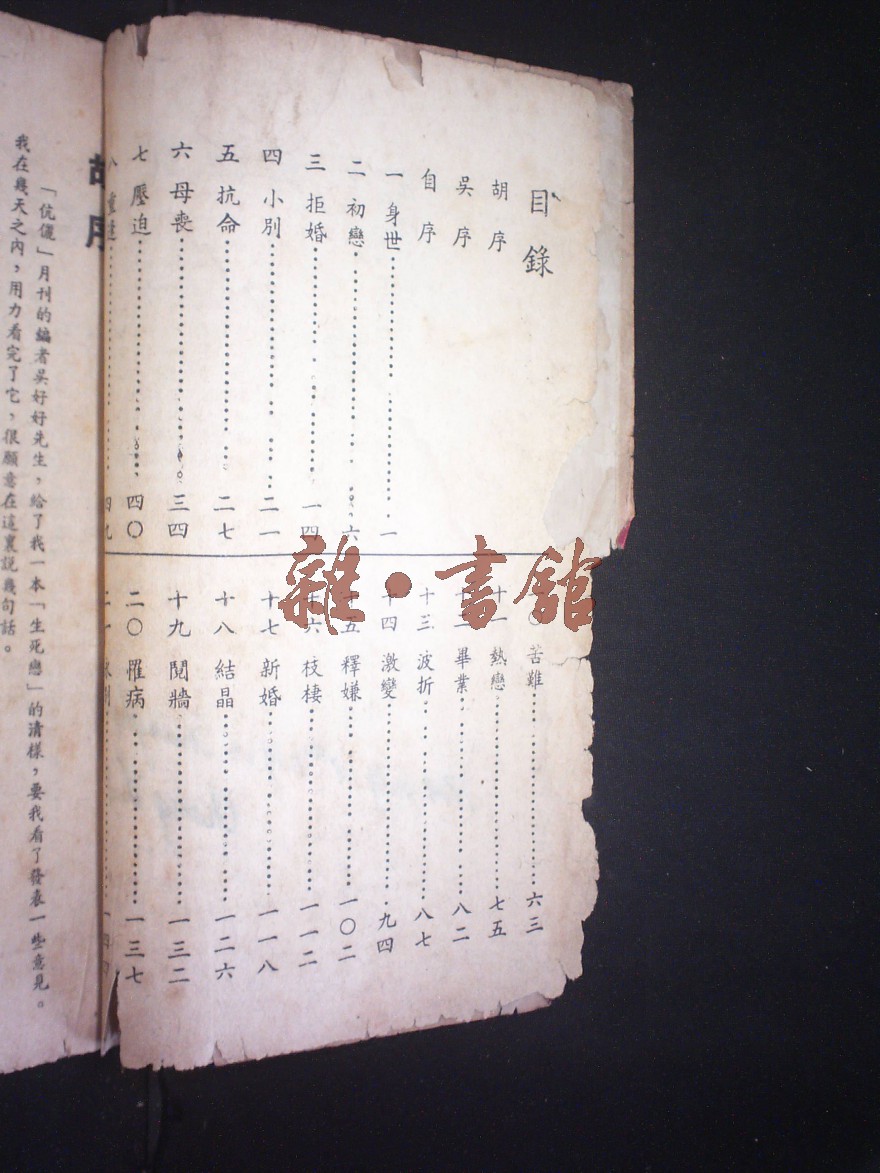 目錄
胡序
吳序
自序
一 身世 一
二 初戀 六
三 拒婚 一四
四 小別 二一
五 抗命 二七
六 母喪 三四
七 壓迫 四〇
八 重逢 四九
苦難 六三
十一 熱戀 七五
十二 畢業 八二
十三 波折 八七
十四 激變 九四
十五 釋嫌 一〇二
十六 枝棲 一一二
十七 新婚 一一八
十八 結晶 一二六
十九 鬩牆 一三二
二〇 罹病 一三七
二一 一四四
胡序
「伉儷」月刊的編者吳好好先生,給了我一本「生死戀」的清樣,要我看了發表一些意見。
我在幾天之內,用力看完了它,很願意在這裏說幾句話。
雜·書館